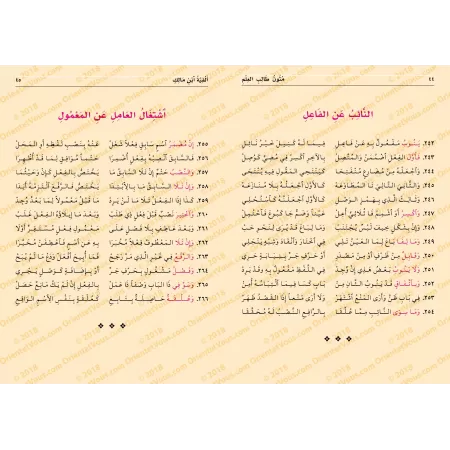 ٤٤ مُتُونُ طَالِبِ العِلْمِ
النَّائِبُ عَنِ الفَاعِلِ
٢٤٢. يَنُوبُ مَفْعُولٌ بِهِ عَنْ فَاعِلِ فِيمَا لَهُ كَنِيلَ خَيْرُ نَائِلِ
٢٤٣. فَأَوَّلَ الفِعْلِ اضْمُمَنْ وَالمُتَّصِلْ بِالآخِرِ اكْسِرْ فِي مُضِيٍّ كَوُصِلْ
٢٤٤. وَاجْعَلْهُ مِنْ مُضَارِعٍ مُنْفَتِحَا كَيَنْتَحِي المَقُولِ فِيهِ يُنْتَحَى
٢٤٥. وَالثَّانِيَ التَّالِيَ تَا المُطَاوَعَهْ كَالأَوَّلِ اجْعَلْهُ بِلَا مُنَازَعَهْ
٢٤٦. وَثَالِثَ الَّذِي بِهَمْزِ الوَصْلِ كَالأَوَّلِ اجْعَلَنَّهُ كَاسْتُحْلِي
٢٤٧. وَاكْسِرْ أَوَ اشْمِمْ فَا ثُلَاثِيٍّ أُعِلّْ عَيْنًا وَضَمٌّ جَا كَبُوعَ فَاحْتُمِلْ
٢٤٨. وَإِنْ بِشَكْلٍ خِيفَ لَبْسٌ يُجْتَنَبْ وَمَا لِبَاعَ قَدْ يُرَى لِنَحْوِ حَبّْ
٢٤٩. وَمَا لِفَا بَاعَ لِمَا العَيْنُ تَلِي فِي اخْتَارَ وَانْقَادَ وَشِبْهٍ يَنْجَلِي
٢٥٠. وَقَابِلٌ مِنْ ظَرْفٍ أَوْ مِنْ مَصْدَرِ أَوْ حَرْفِ جَرٍّ بِنِيَابَةٍ حَرِي
٢٥١. وَلَا يَنُوبُ بَعْضُ هَذِي إِنْ وُجِدْ فِي اللَّفْظِ مَفْعُولٌ بِهِ وَقَدْ يَرِدْ
٢٥٢. وَبِاتِّفَاقٍ قَدْ يَنُوبُ الثَّانِ مِنْ بَابِ كَسَا فِيمَا الْتِبَاسُهُ أُمِنْ
٢٥٣. فِي بَابِ ظَنَّ وَأَرَى المَنْعُ اشْتَهَرْ وَلَا أَرَى مَنْعًا إِذَا القَصْدُ ظَهَرْ
٢٥٤. وَمَا سِوَى النَّائِبِ مِمَّا عُلِّقَا بِالرَّافِعِ النَّصْبُ لَهُ مُحَقَّقَا
أَلْفِيَّةُ ابْنِ مَالِكٍ ٤٥
اشْتِغَالُ العَامِلِ عَنِ المَعْمُولِ
٢٥٥. إِنْ مُضْمَرُ اسْمٍ سَابِقٍ فِعْلًا شَغَلْ عَنْهُ بِنَصْبِ لَفْظِهِ أَوِ المَحَلّْ
٢٥٦. فَالسَّابِقَ انْصِبْهُ بِفِعْلٍ أُضْمِرَا حَتْمًا مُوَافِقٍ لِمَا قَدْ أُظْهِرَا
٢٥٧. وَالنَّصْبُ حَتْمٌ إِنْ تَلَا السَّابِقُ مَا يَخْتَصُّ بِالفِعْلِ كَإِنْ وَحَيْثُمَا
٢٥٨. وَإِنْ تَلَا السَّابِقُ مَا بِالِابْتِدَا يَخْتَصُّ فَالرَّفْعَ الْتَزِمْهُ أَبَدَا
٢٥٩. كَذَا إِذَا الفِعْلُ تَلَا مَا لَمْ يَرِدْ مَا قَبْلُ مَعْمُولًا لِمَا بَعْدُ وُجِدْ
٢٦٠. وَاخْتِيرَ نَصْبٌ قَبْلَ فِعْلٍ ذِي طَلَبْ وَبَعْدَ مَا إِيلَاؤُهُ الفِعْلَ غَلَبْ
٢٦١. وَبَعْدَ عَاطِفٍ بِلَا فَصْلٍ عَلَى مَعْمُولِ فِعْلٍ مُسْتَقِرٍّ أَوَّلَا
٢٦٢. وَإِنْ تَلَا المَعْطُوفُ فِعْلًا مُخْبَرَا بِهِ عَنِ اسْمٍ فَاعْطِفَنْ مُخَيَّرَا
٢٦٣. وَالرَّفْعُ فِي غَيْرِ الَّذِي مَرَّ رَجَحْ فَمَا أُبِيحَ افْعَلْ وَدَعْ مَا لَمْ يُبَحْ
٢٦٤. وَفَصْلُ مَشْغُولٍ بِحَرْفِ جَرِّ أَوْ بِإِضَافَةٍ كَوَصْلٍ يَجْرِي
٢٦٥. وَسَوِّ فِي ذَا البَابِ وَصْفًا ذَا عَمَلْ بِالفِعْلِ إِنْ لَمْ يَكُ مَانِعٌ حَصَلْ
٢٦٦. وَعُلْقَةٌ حَاصِلَةٌ بِتَابِعِ كَعُلْقَةٍ بِنَفْسِ الِاسْمِ الوَاقِعِ